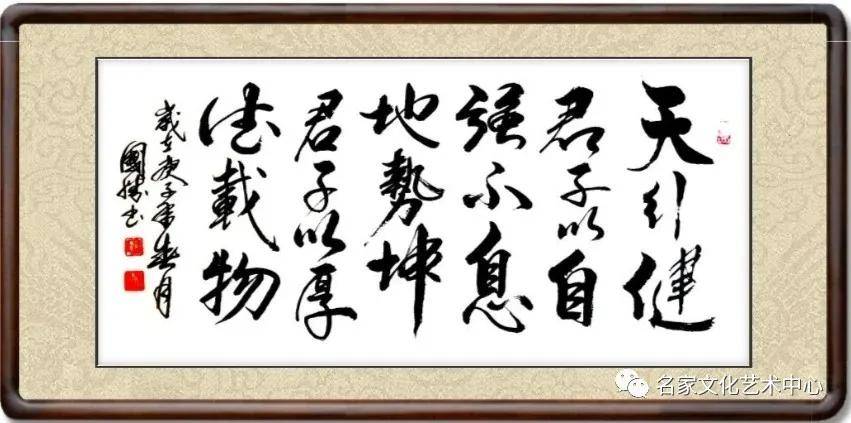 天行健
君子以自
强不息
地勢坤
君子以厚
德載物
歲在庚子年春月
國勝書
名家文化艺术中心